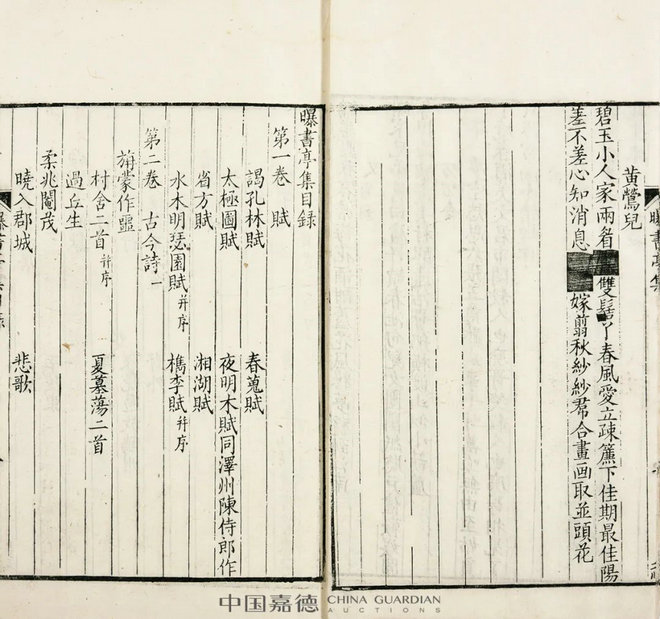 曝書亭集
黄鶯兒
碧玉小人家兩眷雙髻丫春風愛立疎簾下佳期最佳陽
差不差心知消息嫁翦秋紗紗帬合畫画取並頭花
曝書亭集目録
第一卷 賦
謁孔林賦 春蒐賦
太極圖賦 夜明木賦同澤州陳侍郎作
省方賦 湘湖賦
水木明瑟園賦并序 檇李賦并序
第二卷 古今詩一
旃蒙作噩
村舍二首并序 夏墓蕩二首
過丘生
柔兆閹茂
曉入郡城 悲歌
中国嘉德 CHINA GUARDIAN
AUCTIONS